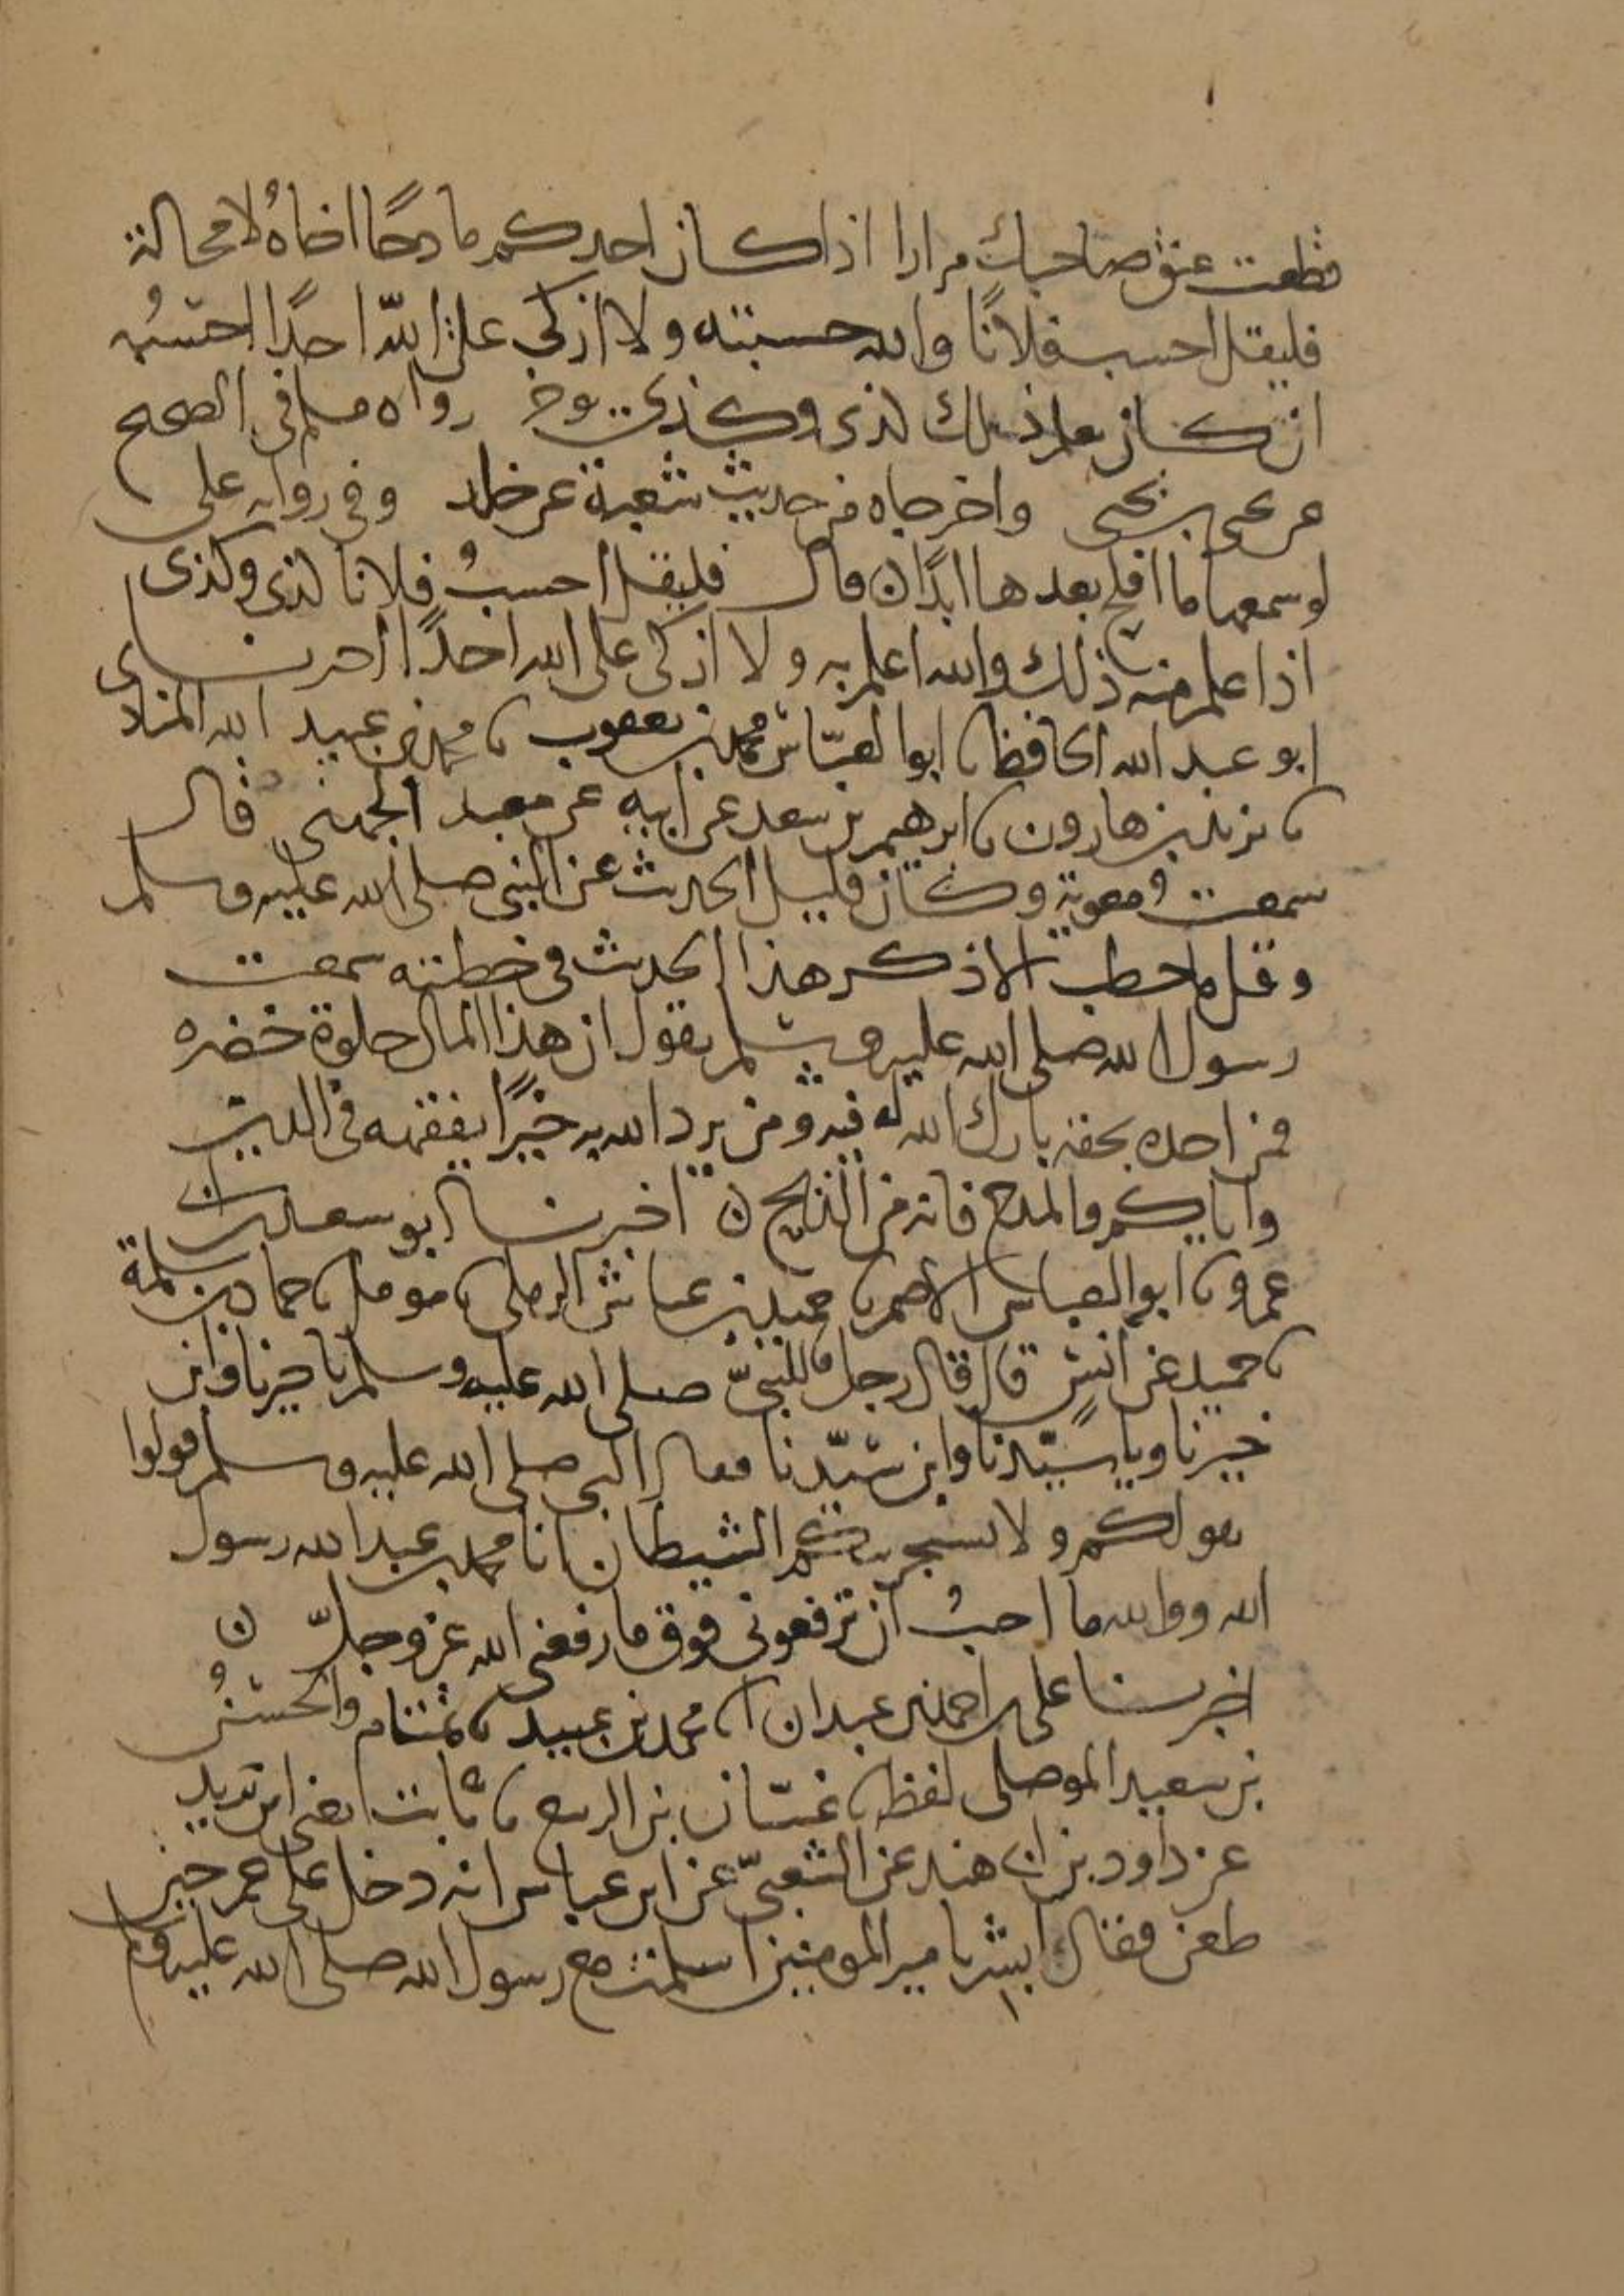 قطعت عنق صاحبك مرارا اذا كان احدكم مادحًا اخاهُ لا محالة
فليقل احسب فلانًا والله حسيبه ولا ازكي على الله احدًا احسبُه
ان كان يعلم ذلك كذى وكذى رواه مسلم في الصحيح
عن يحيى بن يحيى واخرجاه من حديث شعبة عن خلد وفي رواية على
لو سمعها ما افلح بعدها ابدًا ن قال فليقل احسبُ فلانا كذى وكذى
اذا علم منه ذلك والله اعلم به ولا ازكى على الله احدًا اخبرنا
ابو عبد الله الحافظ ابو العبّاس محمد بن يعقوب محمد بن عبيد الله المنادى
يزيد بن هارون ابرهيم بن سعد عن ابيه عن معبد الجهني قال
سمعت معوية وكان قليل الحديث عن النبي صلى الله عليه وسلم
وقل ما خطب الا ذكر هذا الحديث في خطبته سمعت
رسول الله صلى الله عليه وسلم يقول ان هذا المال حلوة خضرة
فمن اخذه بحقه بارك الله له فيه ومن يرد الله به خيرًا يفقهه في الدين
واياكم والمدح فانه من الذبح ن اخبرنا ابو سعيد بن
عمرو ابو العباس الاصم حميد بن عياش الرملى مومل حماد بن سلمة
حميد عن انس قال قال رجل للنبيّ صلى الله عليه وسلم يا خيرنا وابن
خيرنا ويا سيّدنا وابن سيّدنا فقال النبي صلى الله عليه وسلم قولوا
بقولكم ولا يستجرينكم الشيطان انا محمد بن عبد الله رسول
الله ووالله ما احبُ ان ترفعوني فوق ما رفعني الله عز وجلّ ن
اخبرنا على بن احمد بن عبدان محمد بن عبيد تمتام والحسنُ
بن سعيد الموصلي لفظه غسّان بن الربيع ثابت يعني ابن يزيد
عن داود بن ابى هند عن الشعبيّ عن ابن عباس انه دخل على عمر حين
طعن فقال ابشر يا امير المومنين اسلمت مع رسول الله صلى الله عليه وسلم